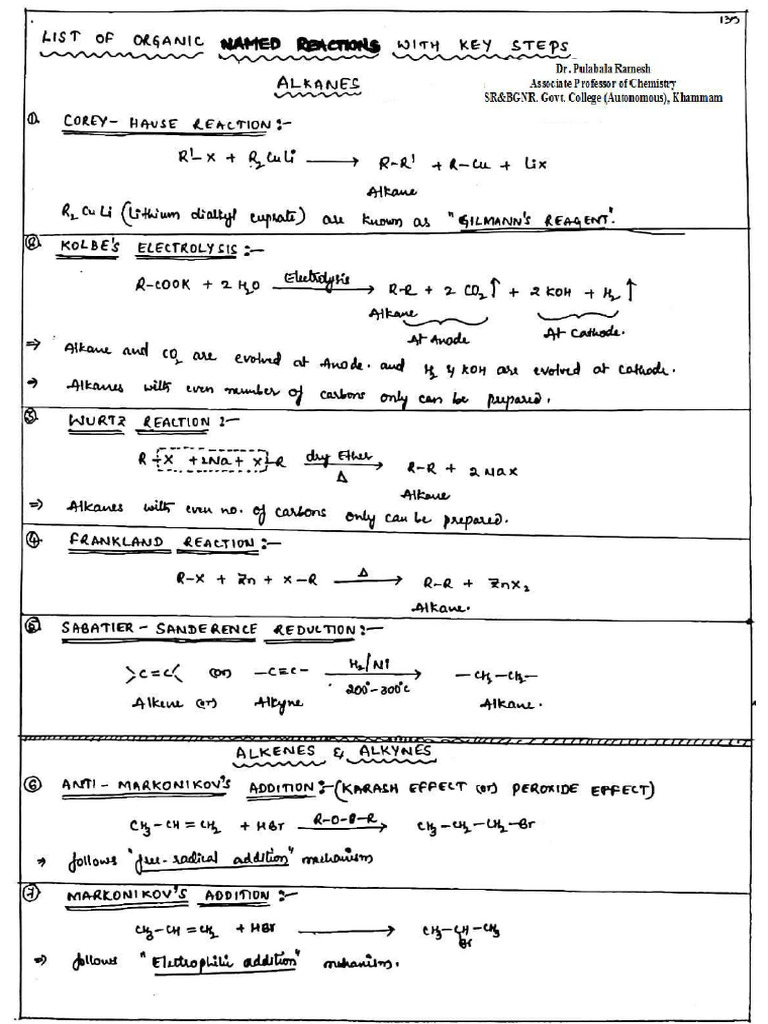 135
LIST OF ORGANIC NAMED REACTIONS WITH KEY STEPS
Dr. Pulabala Ramesh
Associate Professor of Chemistry
SR&BGNR. Govt. College (Autonomous), Khammam
ALKANES
① COREY- HAUSE REACTION:-
R'-X + R₂CuLi ⟶ R-R' + R-Cu + Lix
Alkane
R₂CuLi (Lithium dialkyl cuprate) are known as "GILMANN'S REAGENT".
② KOLBE'S ELECTROLYSIS:-
R-COOK + 2H₂O Electrolysis ⟶ R-R + 2CO₂↑ + 2KOH + H₂↑
Alkane
At Anode At Cathode.
⇒ Alkane and CO₂ are evolved at Anode. and H₂ & KOH are evolved at cathode.
→ Alkanes with even number of carbons only can be prepared.
③ WURTZ REACTION:-
R-X + 2Na + X-R dry Ether ⟶ R-R + 2NaX
Δ
Alkane
⇒ Alkanes with even no. of carbons only can be prepared.
④ FRANKLAND REACTION:-
R-X + Zn + X-R Δ ⟶ R-R + ZnX₂
Alkane.
⑤ SABATIER - SANDERENCE REDUCTION:-
>C=C< (or) -C≡C- H₂/Ni ⟶ -CH₂-CH₂-
200°-300°c
Alkene (or) Alkyne Alkane.
ALKENES & ALKYNES
⑥ ANTI-MARKONIKOV'S ADDITION:-(KARASH EFFECT (or) PEROXIDE EFFECT)
CH₃-CH=CH₂ + HBr R-O-O-R ⟶ CH₃-CH₂-CH₂-Br
⇒ follows "free-radical addition" mechanism
⑦ MARKONIKOV'S ADDITION:-
CH₃-CH=CH₂ + HBr ⟶ CH₃-CH-CH₃
Br
⇒ follows "Electrophilic addition" mechanism.